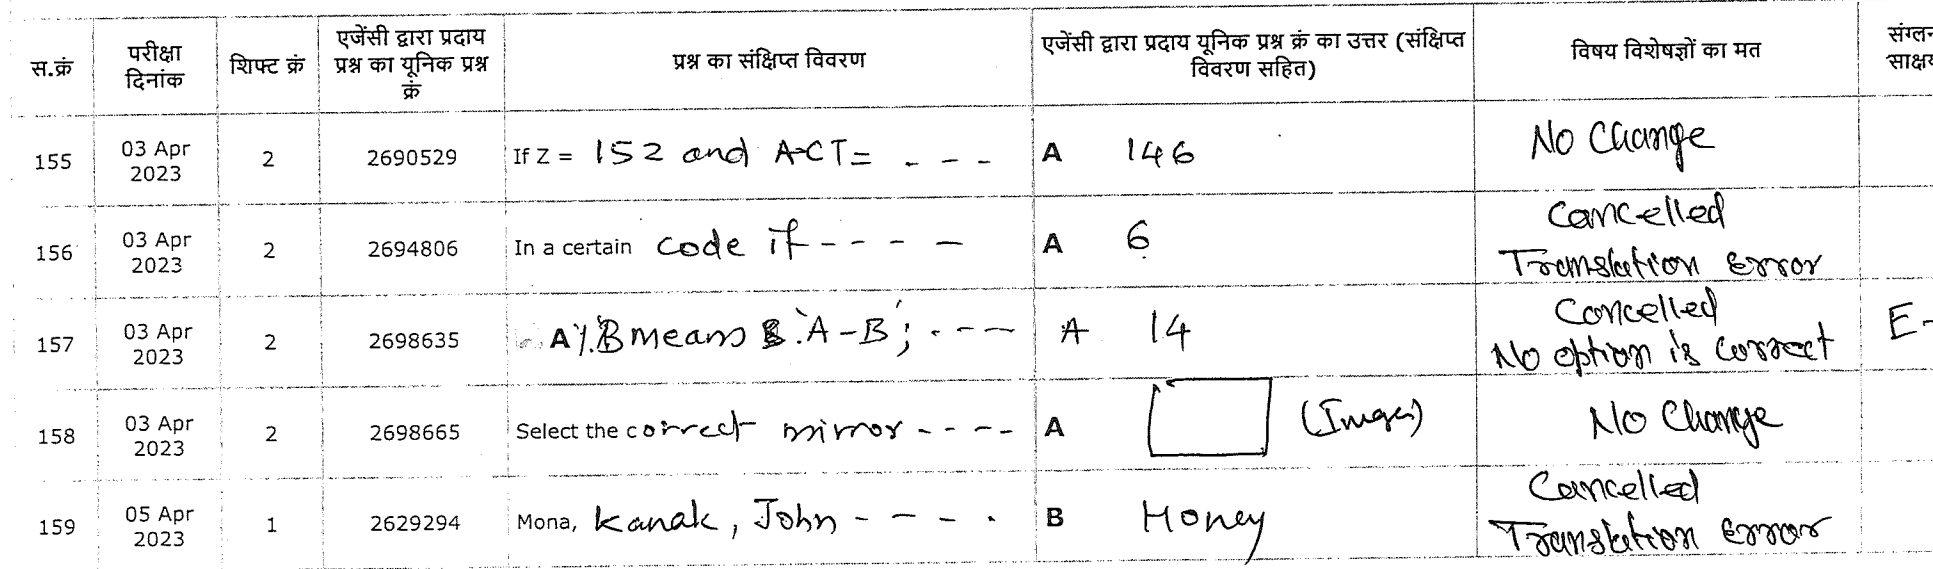 स.क्रं परीक्षा दिनांक शिफ्ट क्रं एजेंसी द्वारा प्रदाय प्रश्न का यूनिक प्रश्न क्रं प्रश्न का संक्षिप्त विवरण एजेंसी द्वारा प्रदाय यूनिक प्रश्न क्रं का उत्तर (संक्षिप्त विवरण सहित) विषय विशेषज्ञों का मत
155 03 Apr 2023 2 2690529 If Z = 152 and ACT = - - - A 146 No Change
156 03 Apr 2023 2 2694806 In a certain code if - - - - A 6 Cancelled Translation Error
157 03 Apr 2023 2 2698635 A%B means 'A-B'; - - - A 14 Cancelled No option is correct E-
158 03 Apr 2023 2 2698665 Select the correct mirror - - - - A (Image) No Change
159 05 Apr 2023 1 2629294 Mona, Kanak, John - - - - B Honey Cancelled Translation Error